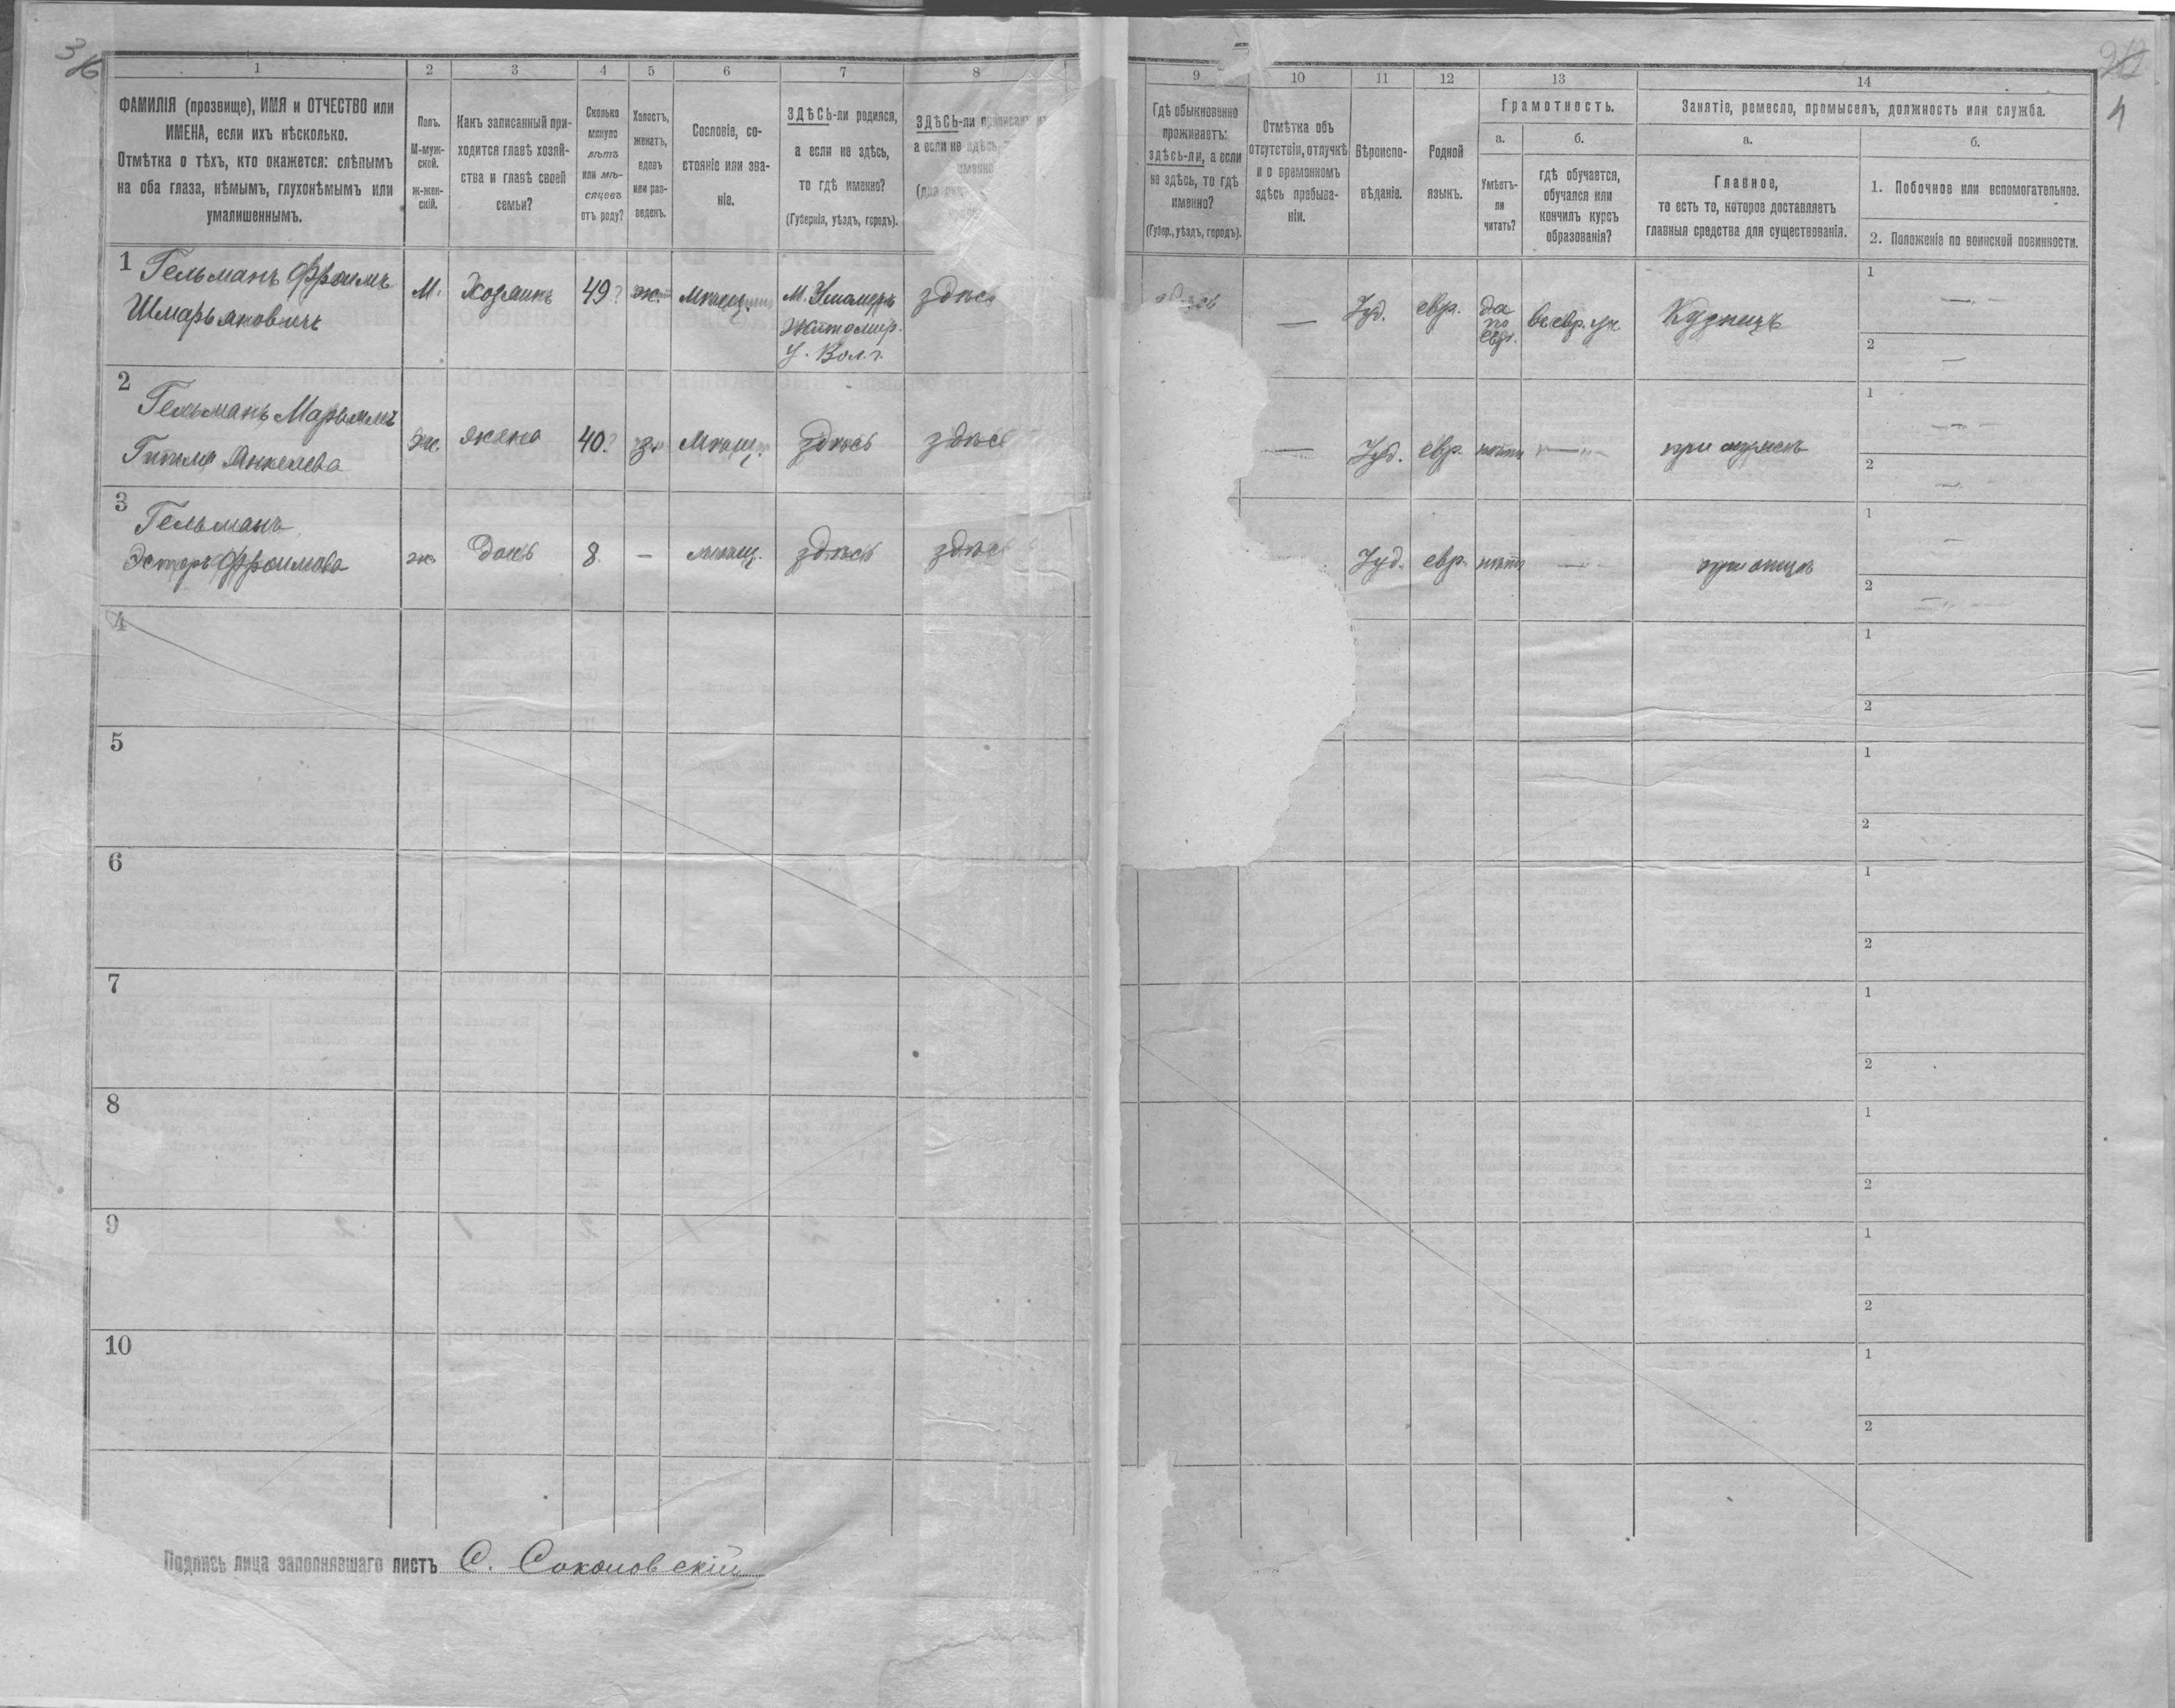 1 2 3 4 5 6 7 8
ФАМИЛІЯ (прозвище), ИМЯ и ОТЧЕСТВО или
ИМЕНА, если ихъ нѣсколько.
Отмѣтка о тѣхъ, кто окажется: слѣпымъ
на оба глаза, нѣмымъ, глухонѣмымъ или
умалишеннымъ.
Полъ.
М-муж-
ской.
Ж-жен-
скій.
Какъ записанный при-
ходится главѣ хозяй-
ства и главѣ своей
семьи?
Сколько
минуло
лѣтъ
или мѣ-
сяцевъ
отъ роду?
Холостъ,
женатъ,
вдовъ
или раз-
веденъ.
Сословіе, со-
стояніе или зва-
ніе.
ЗДѢСЬ-ли родился,
а если не здѣсь,
то гдѣ именно?
(Губернія, уѣздъ, городъ).
ЗДѢСЬ-ли приписанъ
а если не здѣсь,
именно
1
Гельманъ Фроимъ
Шмарьяновичъ
М.
Хозяинъ
49
ж.
мѣщ.
М.
Житомир.
У. Вол. г.
здѣсь
2
Гельманъ Марьямъ
Гитля Янкелева
ж.
жена
40
з.
мѣщ.
здѣсь
здѣсь
3
Гельманъ
Эстеръ Фроимова
ж
дочь
8
—
мѣщ.
здѣсь
здѣсь
4
5
6
7
8
9
10
Подпись лица заполнявшаго листъ С. Соколовскій
9 10 11 12 13 14
Гдѣ обыкновенно
проживаетъ:
здѣсь-ли, а если
не здѣсь, то гдѣ
именно?
(Губер., уѣздъ, городъ).
Отмѣтка объ
отсутствіи, отлучкѣ
и о временномъ
здѣсь пребыва-
ніи.
Вѣроиспо-
вѣданіе.
Родной
языкъ.
Грамотность.
а.
Умѣетъ-
ли
читать?
б.
гдѣ обучается,
обучался или
кончилъ курсъ
образованія?
Занятіе, ремесло, промыселъ, должность или служба.
а.
Главное,
то есть то, которое доставляетъ
главныя средства для существованія.
б.
1. Побочное или вспомогательное.
2. Положеніе по воинской повинности.
здѣсь
—
Іуд.
евр.
да
по
евр.
въ евр. уч.
Кузнецъ
1 —
2 —
—
Іуд.
евр.
нѣтъ
—
при мужѣ
1 —
2 —
Іуд.
евр.
нѣтъ
—
при отцѣ
1 —
2 —
1
2
1
2
1
2
1
2
1
2
1
2
1
2